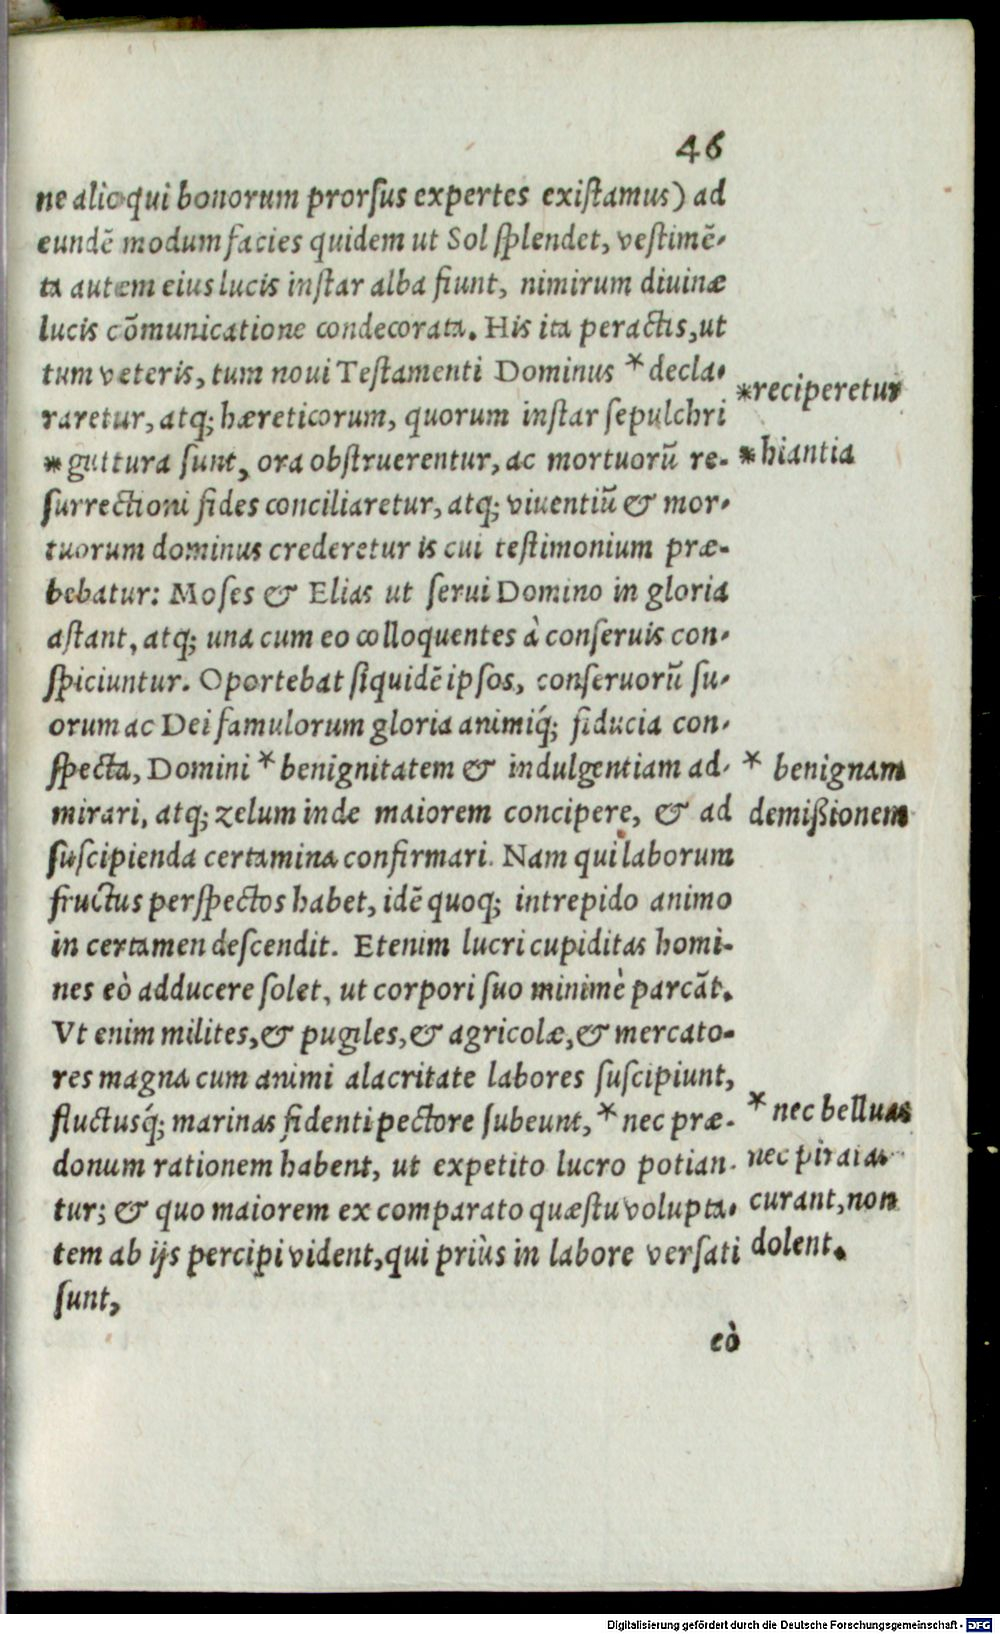 46
ne alioqui bonorum prorſus expertes exiſtamus) ad
eundē modum facies quidem ut Sol ſplendet, veſtimē-
ta autem eius lucis inſtar alba fiunt, nimirum diuinæ
lucis cōmunicatione condecorata. His ita peractis, ut
tum veteris, tum noui Teſtamenti Dominus * decla-
raretur, atq; hæreticorum, quorum inſtar ſepulchri
* guttura ſunt, ora obſtruerentur, ac mortuorū re-
ſurrectioni fides conciliaretur, atq; viuentiū & mor-
tuorum dominus crederetur is cui teſtimonium præ-
bebatur: Moſes & Elias ut ſerui Domino in gloria
aſtant, atq; una cum eo colloquentes à conſeruis con-
ſpiciuntur. Oportebat ſiquidē ipſos, conſeruorū ſu-
orum ac Dei famulorum gloria animiq́; fiducia con-
ſpecta, Domini * benignitatem & indulgentiam ad-
mirari, atq; zelum inde maiorem concipere, & ad
ſuſcipienda certamina confirmari. Nam qui laborum
fructus perſpectos habet, idē quoq; intrepido animo
in certamen deſcendit. Etenim lucri cupiditas homi-
nes eò adducere ſolet, ut corpori ſuo minimè parcāt.
Vt enim milites, & pugiles, & agricolæ, & mercato-
res magna cum animi alacritate labores ſuſcipiunt,
fluctusq́; marinas fidenti pectore ſubeunt, * nec præ-
donum rationem habent, ut expetito lucro potian-
tur; & quo maiorem ex comparato quæſtu volupta-
tem ab ijs percipi vident, qui priùs in labore verſati
ſunt,
eò
*reciperetur
* hiantia
* benignam
demißionem
* nec belluas
nec piratas
curant, non
dolent.
Digitalisierung gefördert durch die Deutsche Forschungsgemeinschaft - DFG